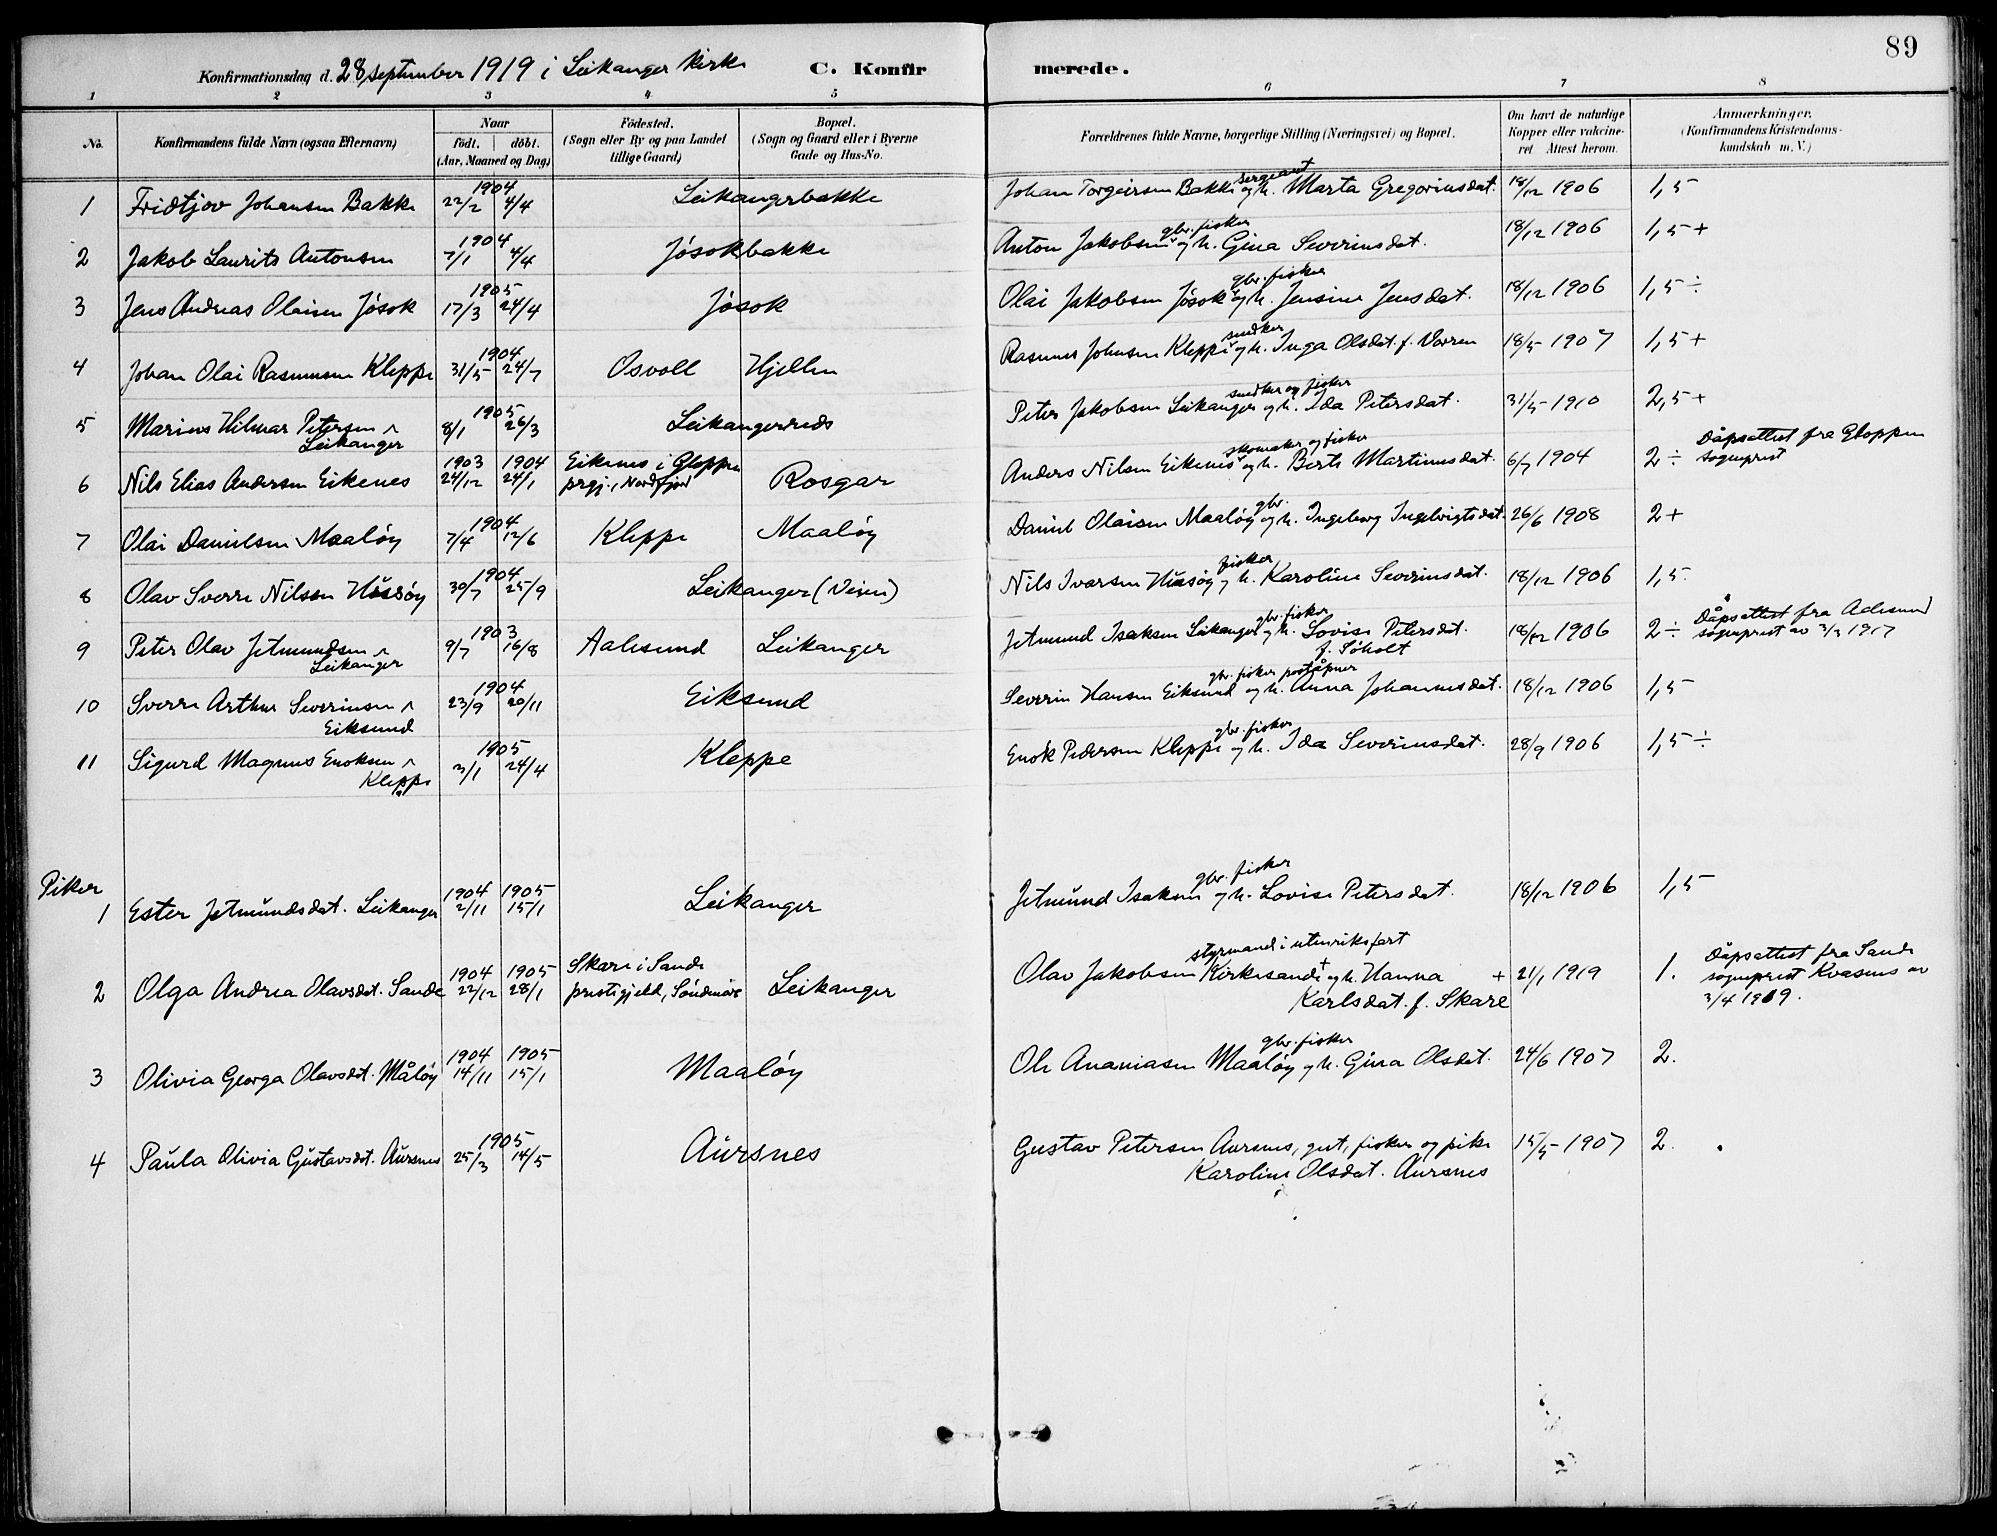 89
Konfirmationsdag d. 28 september 1919 i Leikanger kirke C. Konfirmerede.
1 2 3 4 5 6 7 8
No. Konfirmandens fulde Navn (ogsaa Efternavn) Naar födt. döbt. (Aar, Maaned og Dag) Födested. (Sogn eller By og paa Landet tillige Gaard) Bopæl. (Sogn og Gaard eller i Byerne Gade og Hus-No. Forældrenes fulde Navne, borgerlige Stilling (Næringsvei) og Bopæl. Om havt de naturlige Kopper eller vakcineret. Attest herom. Anmærkninger. (Konfirmandens Kristendomskundskab m. V.)
1 Fridtjov Johansen Bakke 1904 22/2 4/4 Leikangerbakke Johan Torgeirsen Bakke sergeant og h. Marta Gregoriusdat. 18/12 1906 1,5
2 Jakob Laurits Antonsen 1904 7/1 4/4 Jósokbakke Anton Jakobsen gbr. fisker og h. Gina Severinsdat. 18/12 1906 1,5 +
3 Jens Andreas Olaisen Jósok 1905 17/3 24/4 Jósok Olai Jakobsen Jósok gbr. fisker og h. Jensine Jensdat. 18/12 1906 1,5 ÷
4 Johan Olai Rasmusen Kleppe 1904 31/5 24/7 Osvoll Hjellen Rasmus Johnsen Kleppe snedker og h. Inga Olsdat. f. Vorren 18/5 1907 1,5 +
5 Marius Hilmar Petersen Leikanger 1905 8/1 26/3 Leikangerreds Peter Jakobsen Leikanger snedker og fisker og h. Ida Petersdat. 31/5 1910 2,5 +
6 Nils Elias Andersen Eikenes 1903 24/12 1904 24/1 Eikenes i Gloppen prgj., Nordfjord Rosgar Anders Nilsen Eikenes skomaker og fisker og h. Berte Martinusdat. 6/7 1904 2 ÷ Dåpsattest fra Gloppen sogneprest
7 Olai Danielsen Maalóy 1904 7/4 12/6 Kleppe Maalóy Daniel Olaisen Maalóy gbr. og h. Ingeborg Ingebrigtsdat. 26/6 1908 2 +
8 Olav Sverre Nilsen Húsóy 1904 30/7 25/9 Leikanger (Veien) Nils Ivarsen Húsóy fisker og h. Karoline Severinsdat. 18/12 1906 1,5.
9 Peter Olav Jetmundsen Leikanger 1903 9/7 16/8 Aalesund Leikanger Jetmund Isaksen Leikanger gbr. fisker og h. Lovise Petersdat. f. Sóholt 18/12 1906 2 ÷ Dåpsattest fra Aalesund sogneprest av 3/3 1917
10 Sverre Arthur Severinsen Eiksund 1904 23/9 20/11 Eiksund Severin Hansen Eiksund gbr. fisker poståpner og h. Anna Johannesdat. 18/12 1906 1,5
11 Sigurd Magnus Enoksen Kleppe 1905 3/1 24/4 Kleppe Enok Pedersen Kleppe gbr. fisker og h. Ida Severinsdat. 28/9 1906 1,5 ÷
Piker
1 Ester Jetmundsdat. Leikanger 1904 2/11 1905 15/1 Leikanger Jetmund Isaksen gbr. fisker og h. Lovise Petersdat. 18/12 1906 1,5
2 Olga Andrea Olavsdat. Sande 1904 22/12 1905 28/1 Skare i Sande prestegjeld, Sóndmóre Leikanger Olav Jakobsen Kirkesande styrmand i utenriksfart + og h. Hanna Karlsdat. f. Skare + 21/1 1919 1. Dåpsattest fra Sande sogneprest Kvasnes av 3/4 1919.
3 Olivia Georga Olavsdat. Målóy 1904 14/11 1905 15/1 Maalóy Ole Ananiasen Maalóy gbr. fisker og h. Gina Olsdat. 24/6 1907 2.
4 Paula Olivia Gustavsdat. Aursnes 1905 25/3 14/5 Aursnes Gustav Petersen Aursnes, gut, fisker og pike Karoline Olsdat. Aursnes 15/5 1907 2.